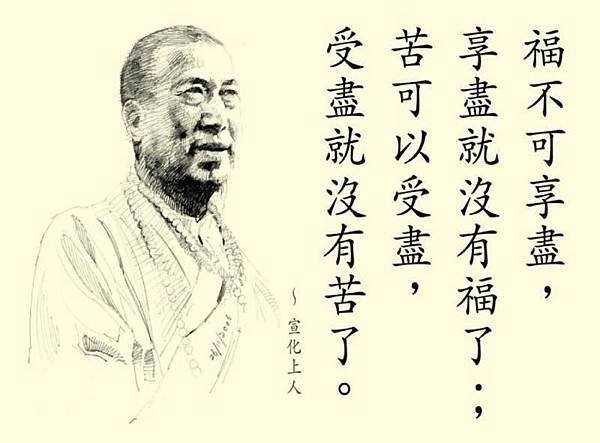 福不可享盡，
享盡就沒有福了；
苦可以受盡，
受盡就沒有苦了。
～宣化上人